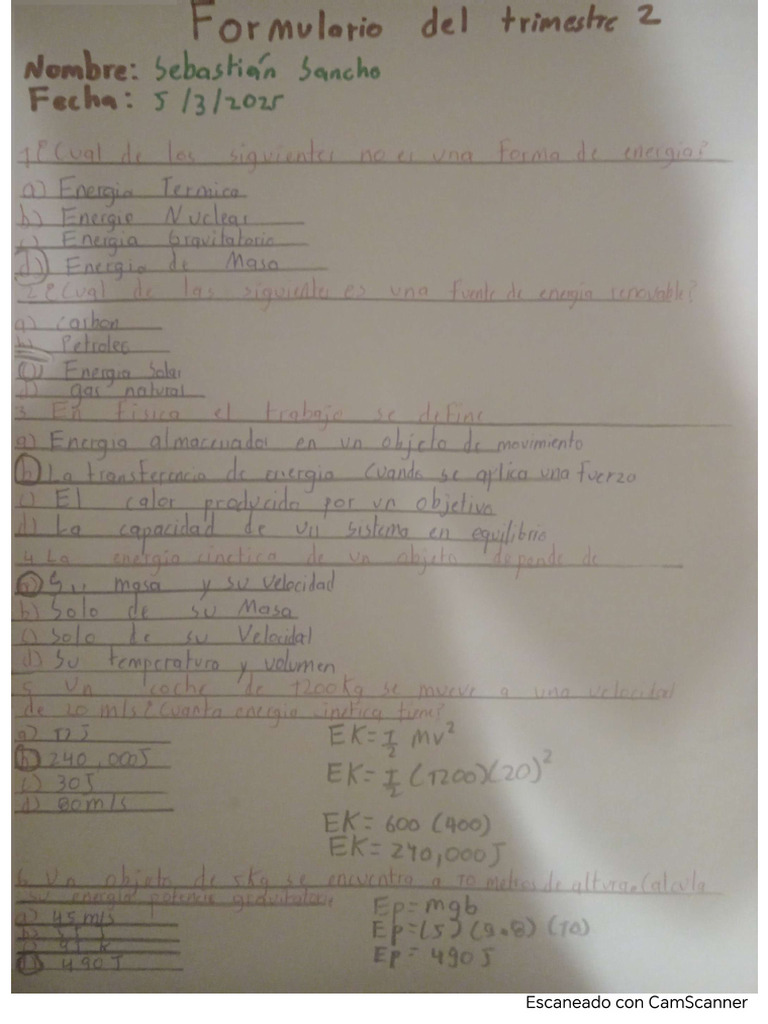 Formulario del trimestre 2
Nombre: Sebastián Sancho
Fecha: 5/3/2025
1¿Cual de los siguientes no es una forma de energia?
a) Energia Termica
b) Energie Nuclear
c) Energia Gravitatorio
d) Energia de Masa
2¿Cual de las siguientes es una fuente de energia renovable?
a) carbon
b) Petroleo
c) Energia Solar
d) gas natural
3. En Fisica el trabajo se define
a) Energia almacenados en un objeto de movimiento
b) La transferencia de energia cuando se aplica una fuerza
c) El calor producido por un objetivo
d) La capacidad de un sistema en equilibrio
4. La energia cinetica de un objeto depende de
a) Su masa y su velocidad
b) Solo de su Masa
c) Solo de su Velocidal
d) Su temperatura y volumen
5. Un coche de 1200kg se mueve a una velocidal
de 20 m/s ¿Cuanta energia cinetica tiene?
a) 12 J
b) 240,000J
c) 30J
d) 80m/s
EK=1/2 mv²
EK=1/2 (1200)(20)²
EK= 600 (400)
EK= 240,000J
6. Un objeto de 5kg se encuentra a 10 metros de altura. Calcula
su energia potencie gravitatorie
a) 45m/s
d) 490J
Ep=mgb
Ep=(5)(9.8)(10)
Ep= 490J
Escaneado con CamScanner